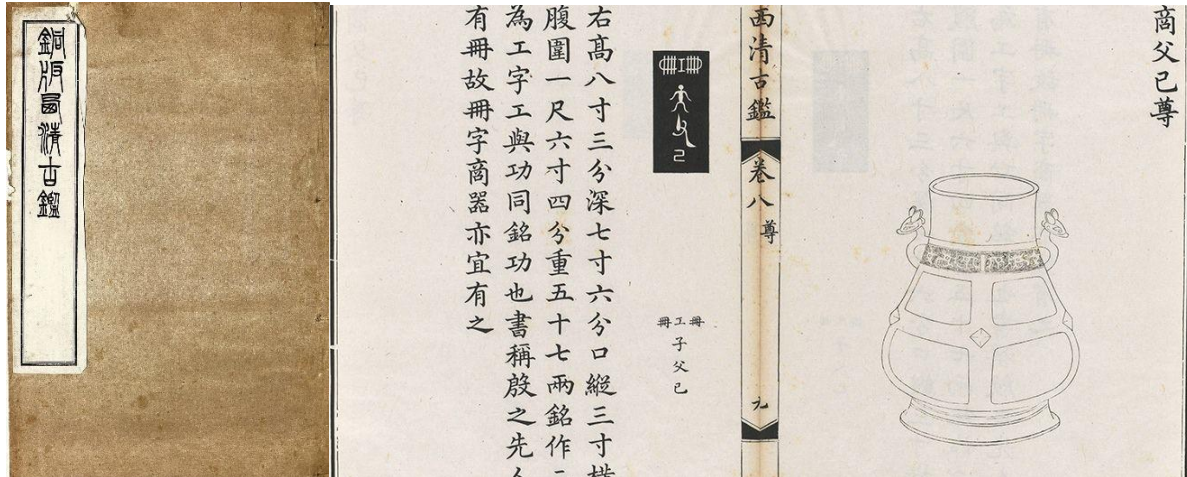 銅版西清古鑑
商父己尊
西清古鑑 卷八 尊 九
冊工冊子父己
右高八寸三分深七寸六分口縱三寸
腹圍一尺六寸四分重五十七兩銘作
為工字工與功同銘功也書稱殷之先
有冊故冊字商器亦宜有之